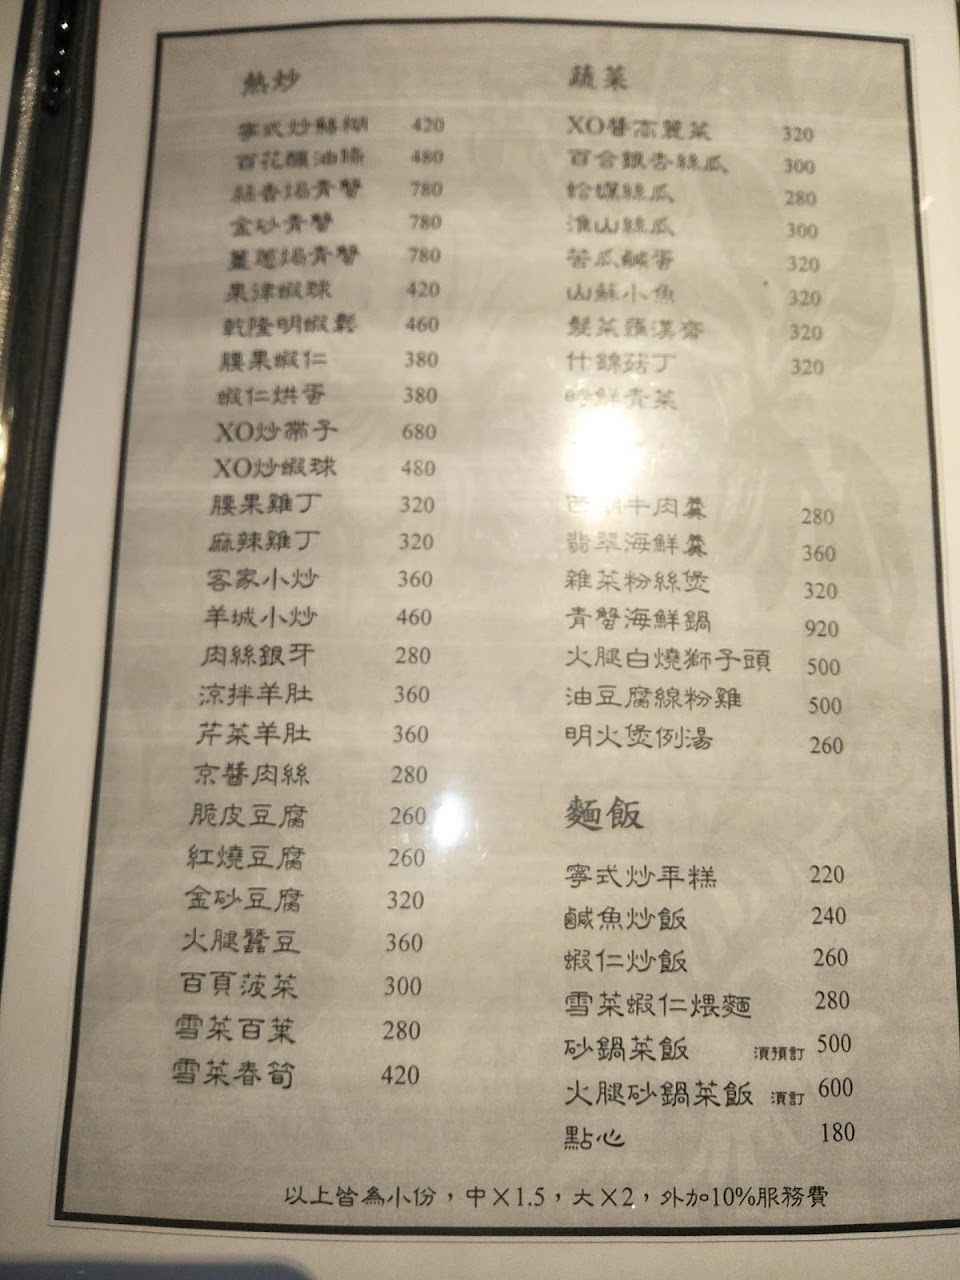 熱炒
寧式炒鱔糊 420
百花釀油條 480
蒜香焗青蟹 780
金砂青蟹 780
薑蔥焗青蟹 780
果律蝦球 420
乾隆明蝦鬆 460
腰果蝦仁 380
蝦仁烘蛋 380
XO炒帶子 680
XO炒蝦球 480
腰果雞丁 320
麻辣雞丁 320
客家小炒 360
羊城小炒 460
肉絲銀牙 280
涼拌羊肚 360
芹菜羊肚 360
京醬肉絲 280
脆皮豆腐 260
紅燒豆腐 260
金砂豆腐 320
火腿蠶豆 360
百頁菠菜 300
雪菜百葉 280
雪菜春筍 420
蔬菜
XO醬高麗菜 320
百合銀杏絲瓜 300
蛤蜊絲瓜 280
淮山絲瓜 300
苦瓜鹹蛋 320
山蘇小魚 320
髮菜羅漢齋 320
什錦菇丁 320
時鮮青菜
西湖牛肉羹 280
翡翠海鮮羹 360
雜菜粉絲煲 320
青蟹海鮮鍋 920
火腿白燒獅子頭 500
油豆腐線粉雞 500
明火煲例湯 260
麵飯
寧式炒年糕 220
鹹魚炒飯 240
蝦仁炒飯 260
雪菜蝦仁煨麵 280
砂鍋菜飯 須預訂 500
火腿砂鍋菜飯 須訂 600
點心 180
以上皆為小份，中×1.5，大×2，外加10%服務費